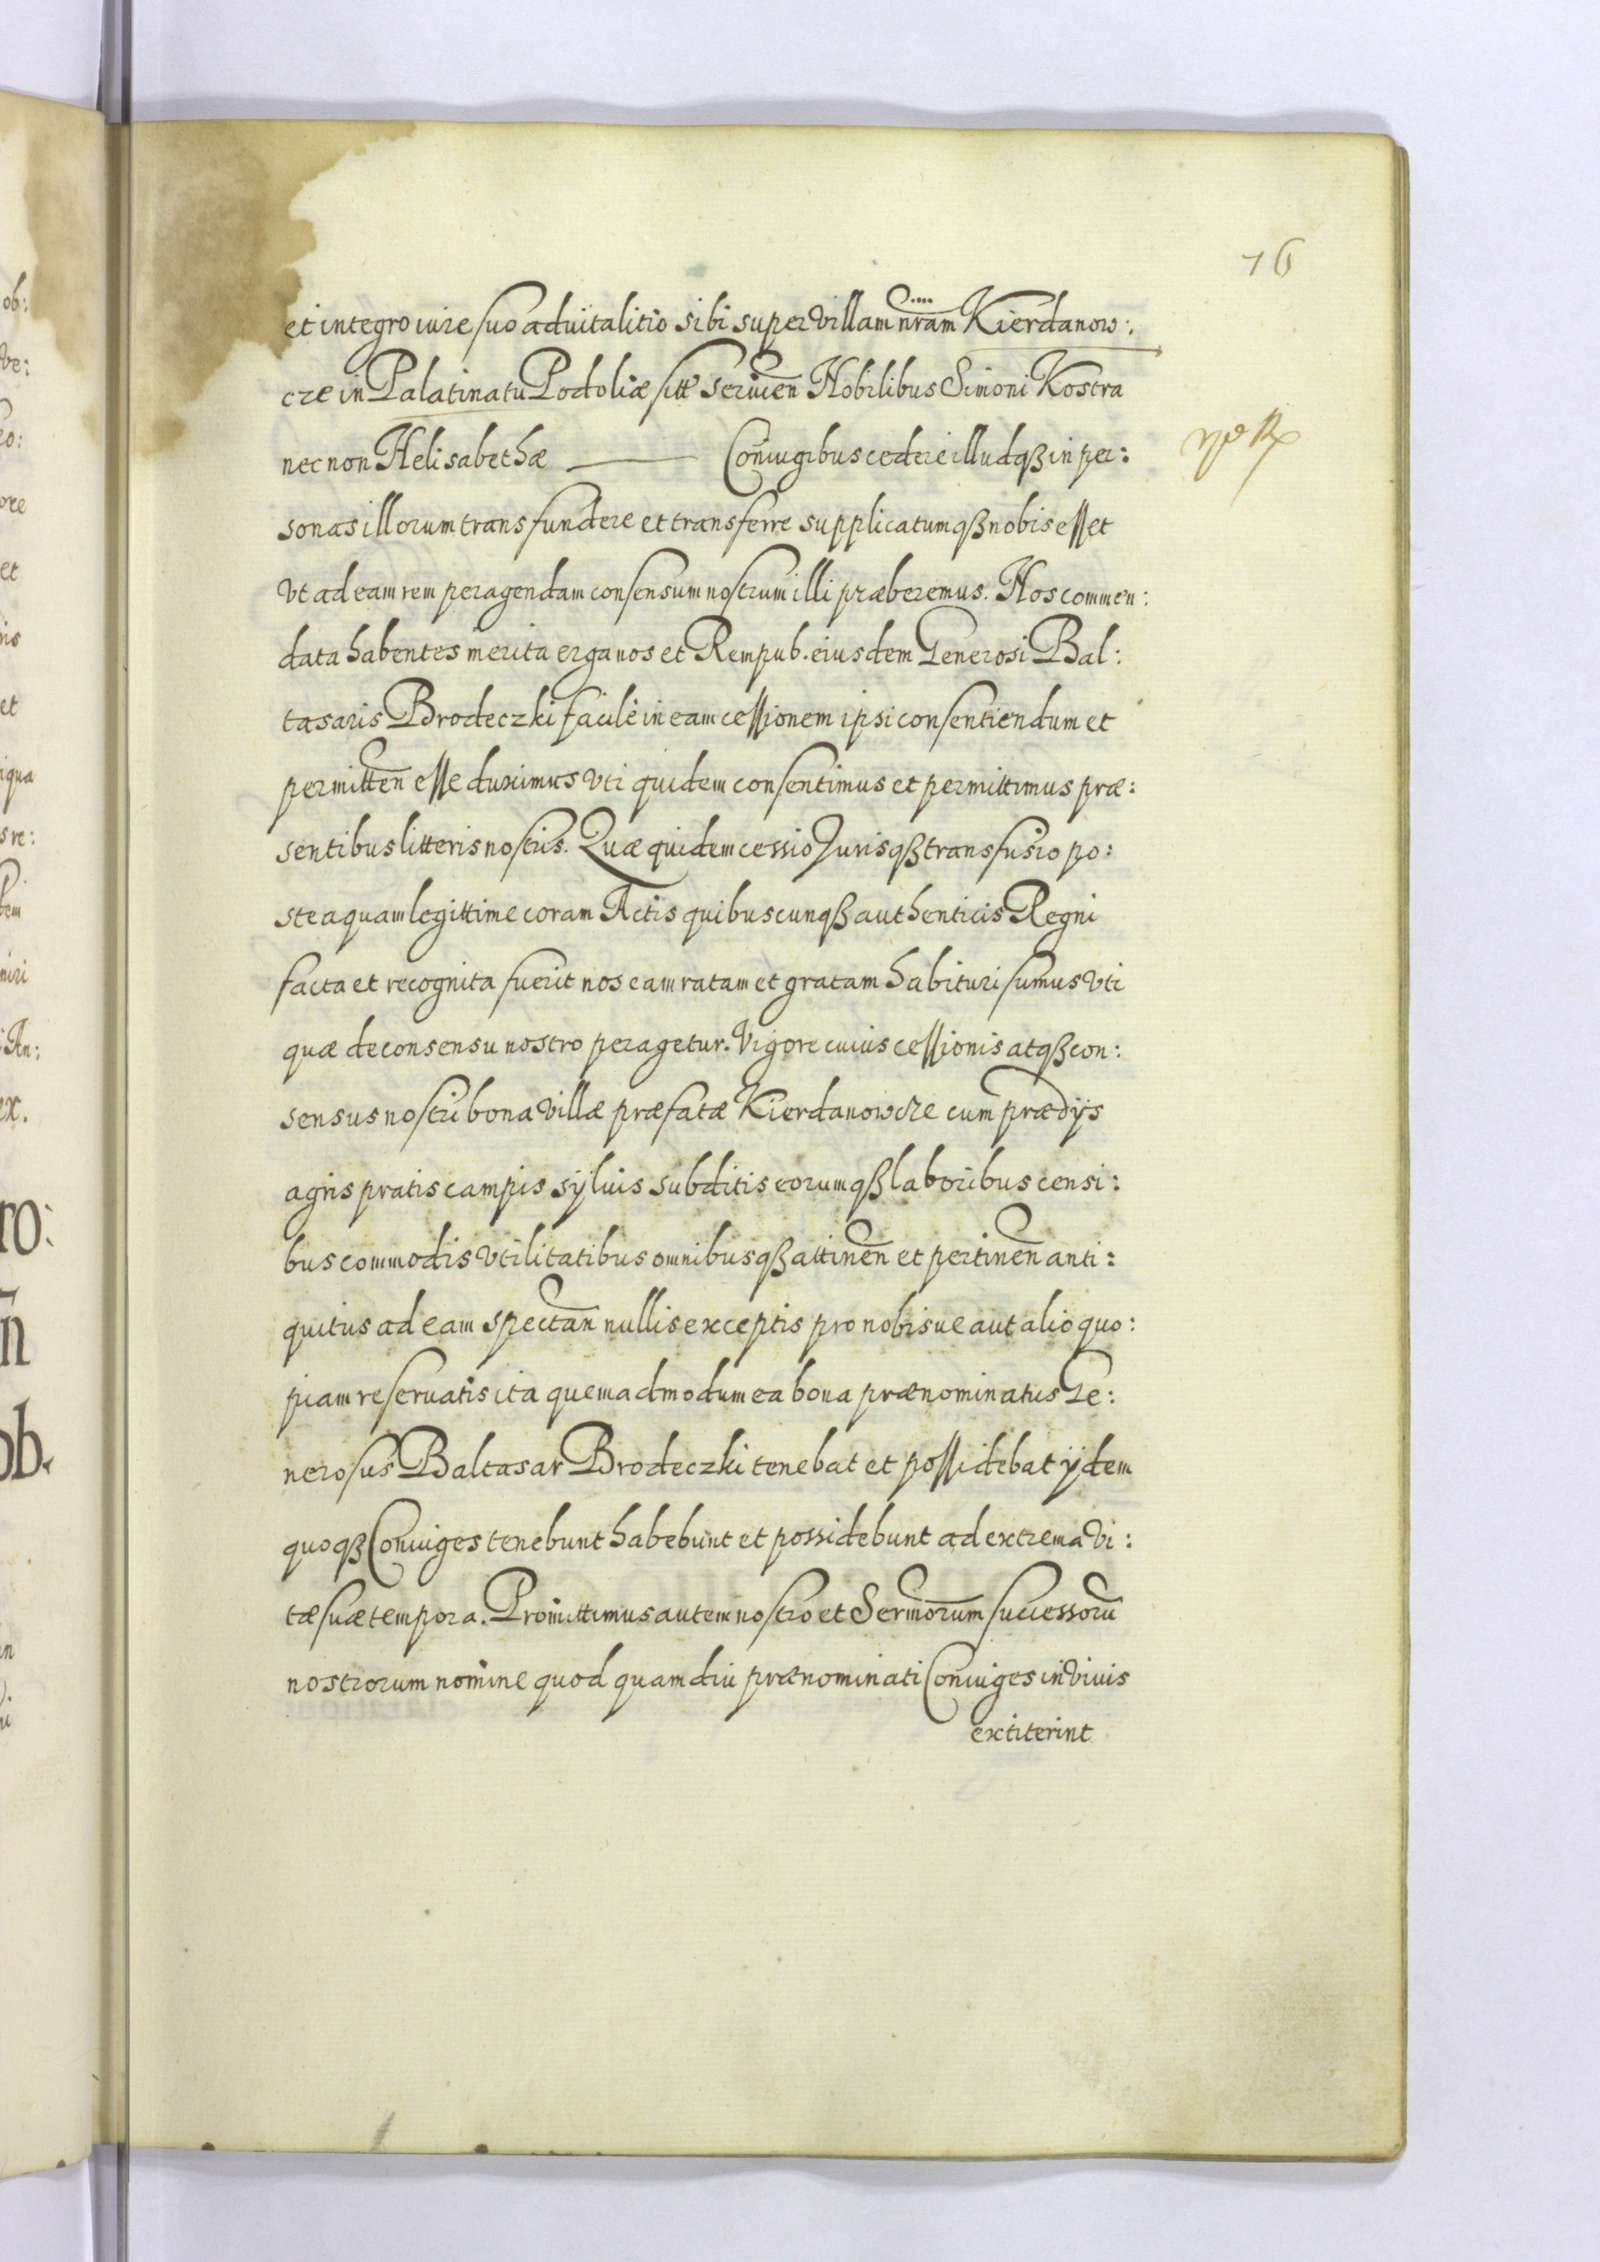 16
et integro iure suo aduitalitio sibi super villam nram Kierdanow:
cze in Palatinatu Podoliæ sitt seruien Nobilibus Simoni Kostra
nec non Helisabethæ ——— Coniugibus cedere illudqß in per:
sonas illorum transfundere et transferre supplicatumqß nobis esset
vt ad eam rem peragendam consensum nostrum illi præberemus. Nos commen:
data habentes merita erga nos et Rempub. eiusdem Generosi Bal:
tasaris Brodeczki facile in eam cessionem ipsi consentiendum et
permitten esse duximus vti quidem consentimus et permittimus præ:
sentibus litteris nostris. Quæ quidem cessio Jurisqß transfusio po:
steaquam legittime coram Actis quibuscunqß authenticis Regni
facta et recognita fuerit nos eam ratam et gratam habituri sumus vti
quæ de consensu nostro peragetur. Vigore cuius cessionis atqß con:
sensus nostri bona villæ præfatæ Kierdanowcze cum prædijs
agris pratis campis syluis subditis eorumqß laboribus censi:
bus commodis vtilitatibus omnibusqß attinen et pertinen anti:
quitus ad eam spectan nullis exceptis pro nobisue aut alio quo:
piam reseruatis ita quemadmodum ea bona prænominatus Ge:
nerosus Baltasar Brodeczki tenebat et possidebat ijdem
quoqß Coniuges tenebunt habebunt et possidebunt ad extrema vi:
tæ suæ tempora. Promittimus autem nostro et Sermorum successorū
nostrorum nomine quod quamdiu prænominati Coniuges in viuis
extiterint